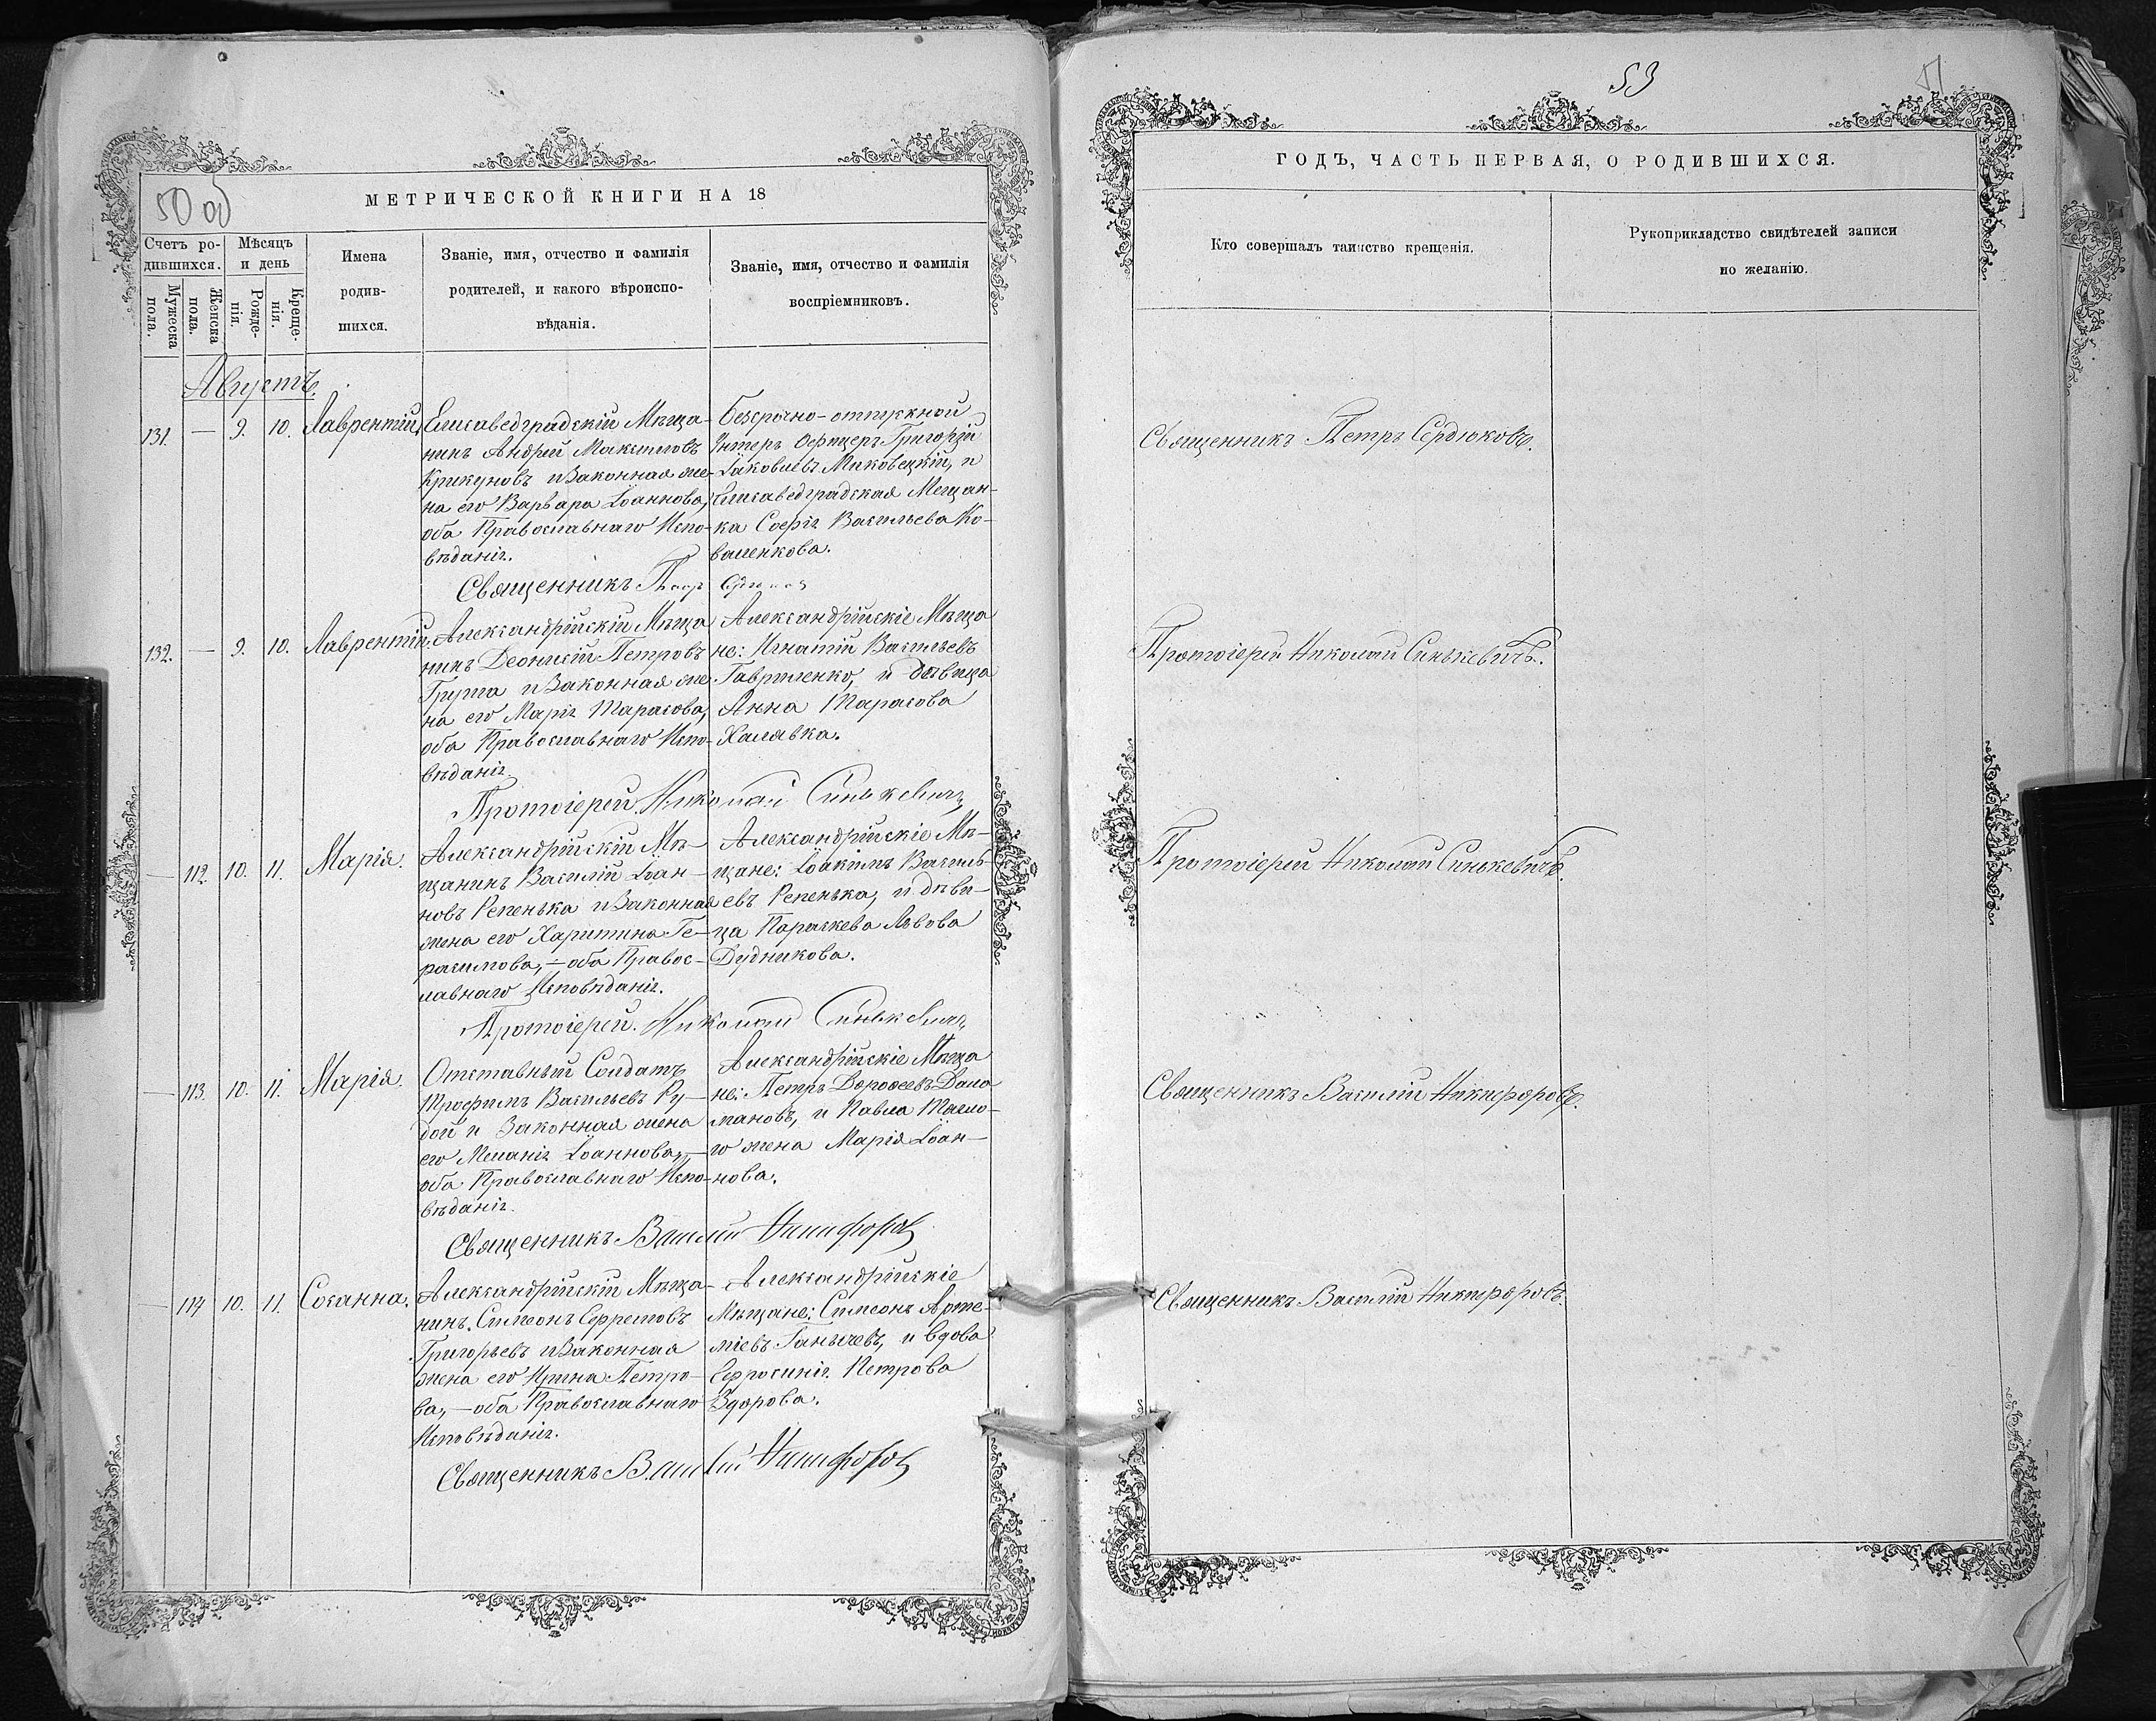 50 об
МЕТРИЧЕСКОЙ КНИГИ НА 18
Счетъ ро-
дившихся.
Мужеска
пола.
Женска
пола.
Мѣсяцъ
и день
Рожде-
нія.
Креще-
нія.
Имена
родив-
шихся.
Званіе, имя, отчество и фамилія
родителей, и какого вѣроиспо-
вѣданія.
Званіе, имя, отчество и фамилія
воспріемниковъ.
Августъ.
131. — 9. 10. Лаврентій,
Елисаведградскій Мѣща-
нинъ Андрей Максимовъ
Крикуновъ и Законная же-
на его Варвара Іоаннова,
оба Православнаго Испо-
вѣданія.
Безсрочно-отпускной
Унтеръ Офицеръ Григорій
Іаковлевъ Миковецкій, и
Елисаведградская Мещан-
ка Софія Васильева Ко-
валенкова.
Священникъ Петр Сердюков
132. — 9. 10. Лаврентій.
Александрійскій Мѣща
нинъ Деонисій Петровъ
Груша и Законная же-
на его Марія Тарасова,
оба Православнаго Испо-
вѣданія
Александрійскіе Мѣща
не: Игнатій Васильевъ
Гавриленко, и дѣвица
Анна Тарасова
Халявка.
Протоіерей Николай Синькевичъ
— 112. 10. 11. Марія.
Александрійскій Мѣ-
щанинъ Василій Іоан-
новъ Репенька и Законная
жена его Харитина Ге-
расимова, — оба Правос-
лавнаго Исповѣданія.
Александрійскіе Мѣ-
щане: Іоакимъ Василь-
евъ Репенька, и дѣви-
ца Параскева Львова
Дудникова.
Протоіерей. Николай Синькевичъ
— 113. 10. 11. Марія.
Отставный Солдатъ
Трофимъ Васильевъ Ру-
дой и Законная жена
его Меланія Іоаннова, —
оба Православнаго Испо-
вѣданія.
Александрійскіе Мѣща
не: Петръ Дорофеевъ
и Павла
го жена Марія Іоан-
нова.
Священникъ Василій Никифоровъ
— 114 10. 11. Сосанна.
Александрійскій Мѣща-
нинъ. Симеонъ Ефремовъ
Григорьевъ и Законная
жена его Ирина Петро-
ва, — оба Православнаго
Исповѣданія.
Александрійскіе
Мѣщане: Симеонъ Арте-
міевъ Ганычевъ, и вдова
Ефросинія Петрова
Здорова.
Священникъ Василій Никифоровъ
53
51
ГОДЪ, ЧАСТЬ ПЕРВАЯ, О РОДИВШИХСЯ.
Кто совершалъ таинство крещенія.
Рукоприкладство свидѣтелей записи
по желанію.
Священникъ Петръ Сердюковъ.
Протоіерей Николай Синькевичъ.
Протоіерей Николай Синькевичъ.
Священникъ Василій Никифоровъ.
Священникъ Василій Никифоровъ.